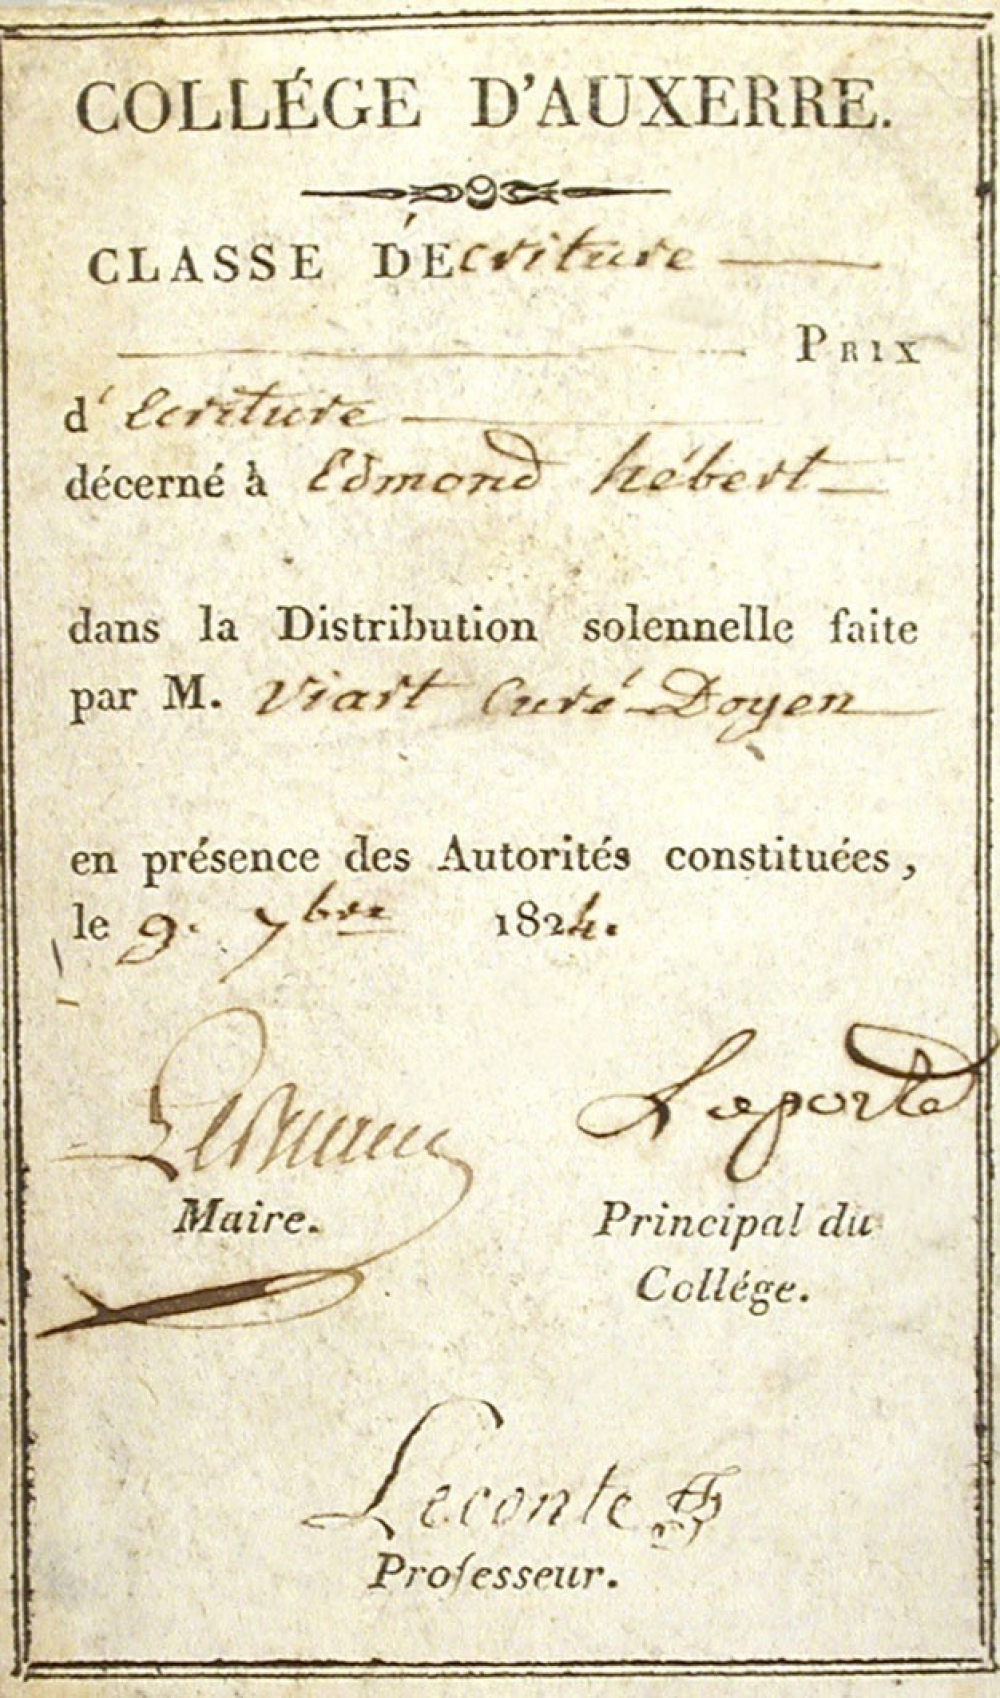 COLLÉGE D'AUXERRE.
CLASSE D'Écriture
PRIX
d'Ecriture
décerné à Edmond hébert
dans la Distribution solennelle faite
par M. Viart Curé-Doyen
en présence des Autorités constituées,
le 9. 7bre 1824.
Laporte
Maire.
Principal du
Collége.
Leconte
Professeur.